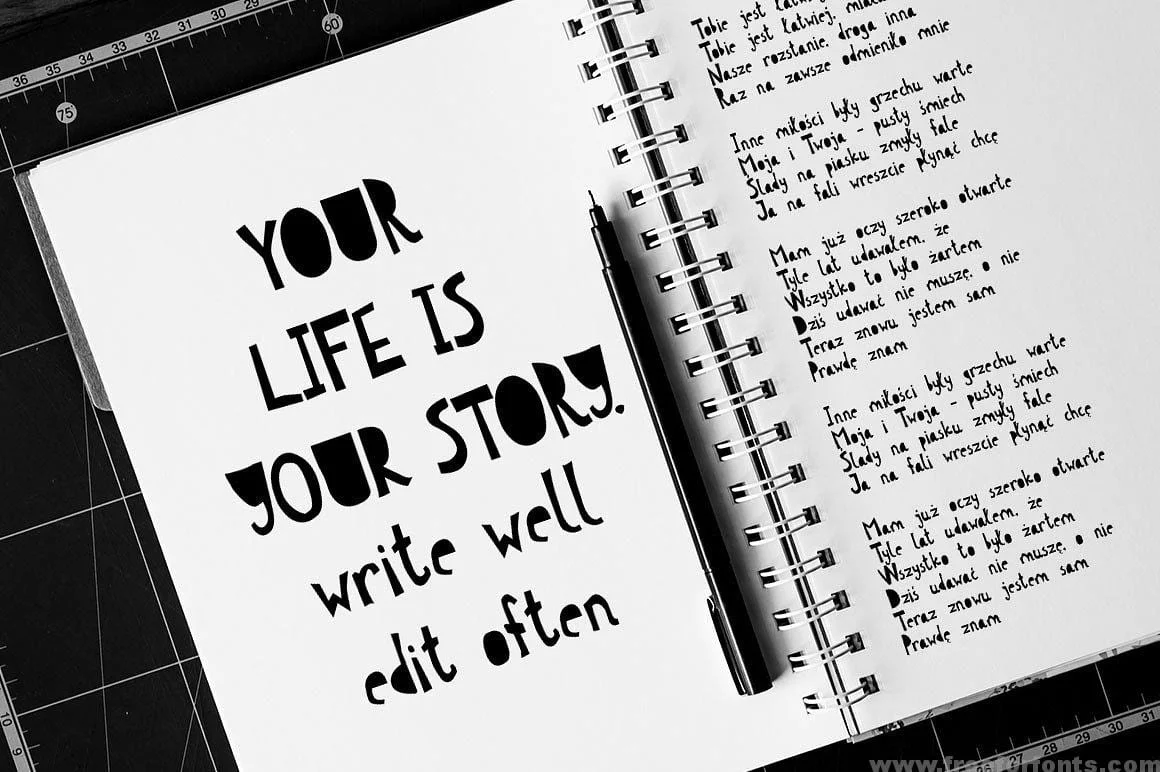 YOUR
LIFE IS
YOUR STORY.
write well
edit often
Tobie jest łatwiej,
Nasze rozstanie, droga inna
Raz na zawsze odmieniło mnie
Inne miłości były grzechu warte
Moja i Twoja - pusty śmiech
Ślady na piasku zmyły fale
Ja na fali wreszcie płynąć chcę
Mam już oczy szeroko otwarte
Tyle lat udawałem, że
Wszystko to było żartem
Dziś udawać nie muszę, o nie
Teraz znowu jestem sam
Prawdę znam
Inne miłości były grzechu warte
Moja i Twoja - pusty śmiech
Ślady na piasku zmyły fale
Ja na fali wreszcie płynąć chcę
Mam już oczy szeroko otwarte
Tyle lat udawałem, że
Wszystko to było żartem
Dziś udawać nie muszę, o nie
Teraz znowu jestem sam
Prawdę znam
36 35 34 33 32 31 30 29 28
60
75
10 9
27 28 29 30 31
www.freeforfonts.com